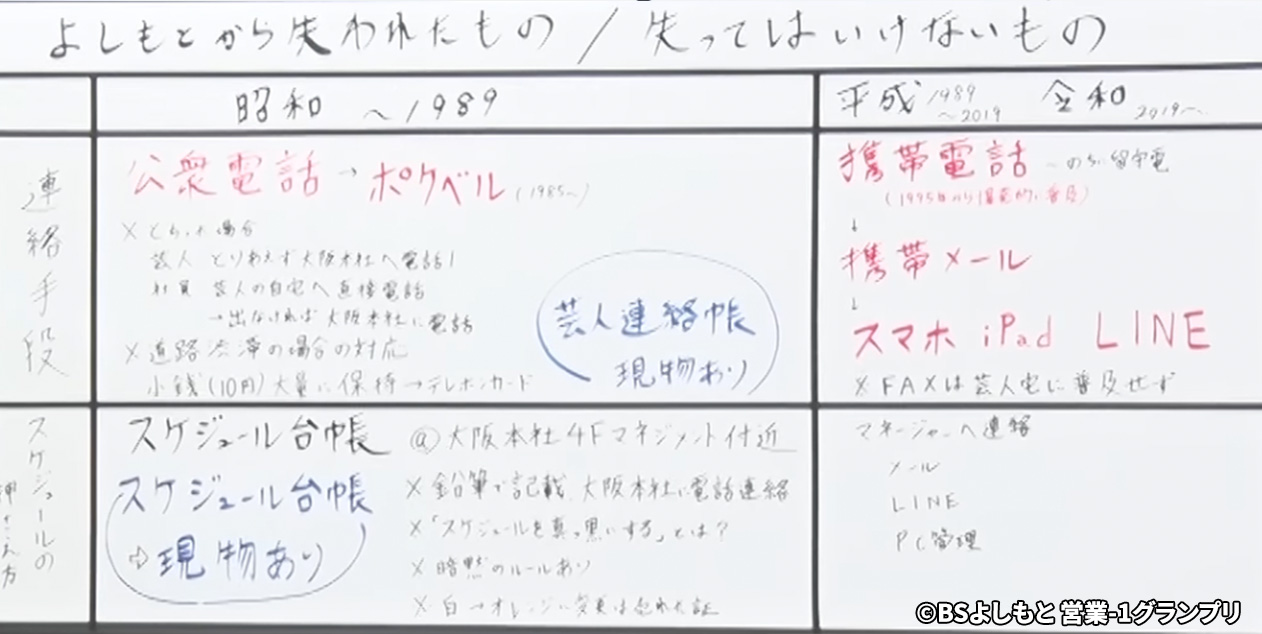 よしもとから失われたもの / 失ってはいけないもの
昭和 〜1989
平成 1989〜2019 令和 2019〜
連絡手段
公衆電話→ポケベル(1985〜)
※とらぶった場合
芸人 とりあえず大阪本社へ電話!
社員 芸人の自宅へ直接電話
→出なければ大阪本社に電話
※道路渋滞の場合の対応
小銭(10円)大量に保持→テレホンカード
芸人連絡帳
現物あり
携帯電話 〜のち留守電
(1995年から爆発的に普及)
↓
携帯メール
↓
スマホ iPad LINE
※FAXは芸人宅に普及せず
スケジュールの
押さえ方
スケジュール台帳 @大阪本社4Fマネジメント付近
スケジュール台帳
⇨現物あり
※鉛筆で記載 大阪本社に電話連絡
※「スケジュールを真っ黒にする」とは?
※暗黙のルールあり
※白→オレンジに変更は売れた証
マネージャーへ連絡
メール
LINE
PC管理
©BSよしもと 営業-1グランプリ